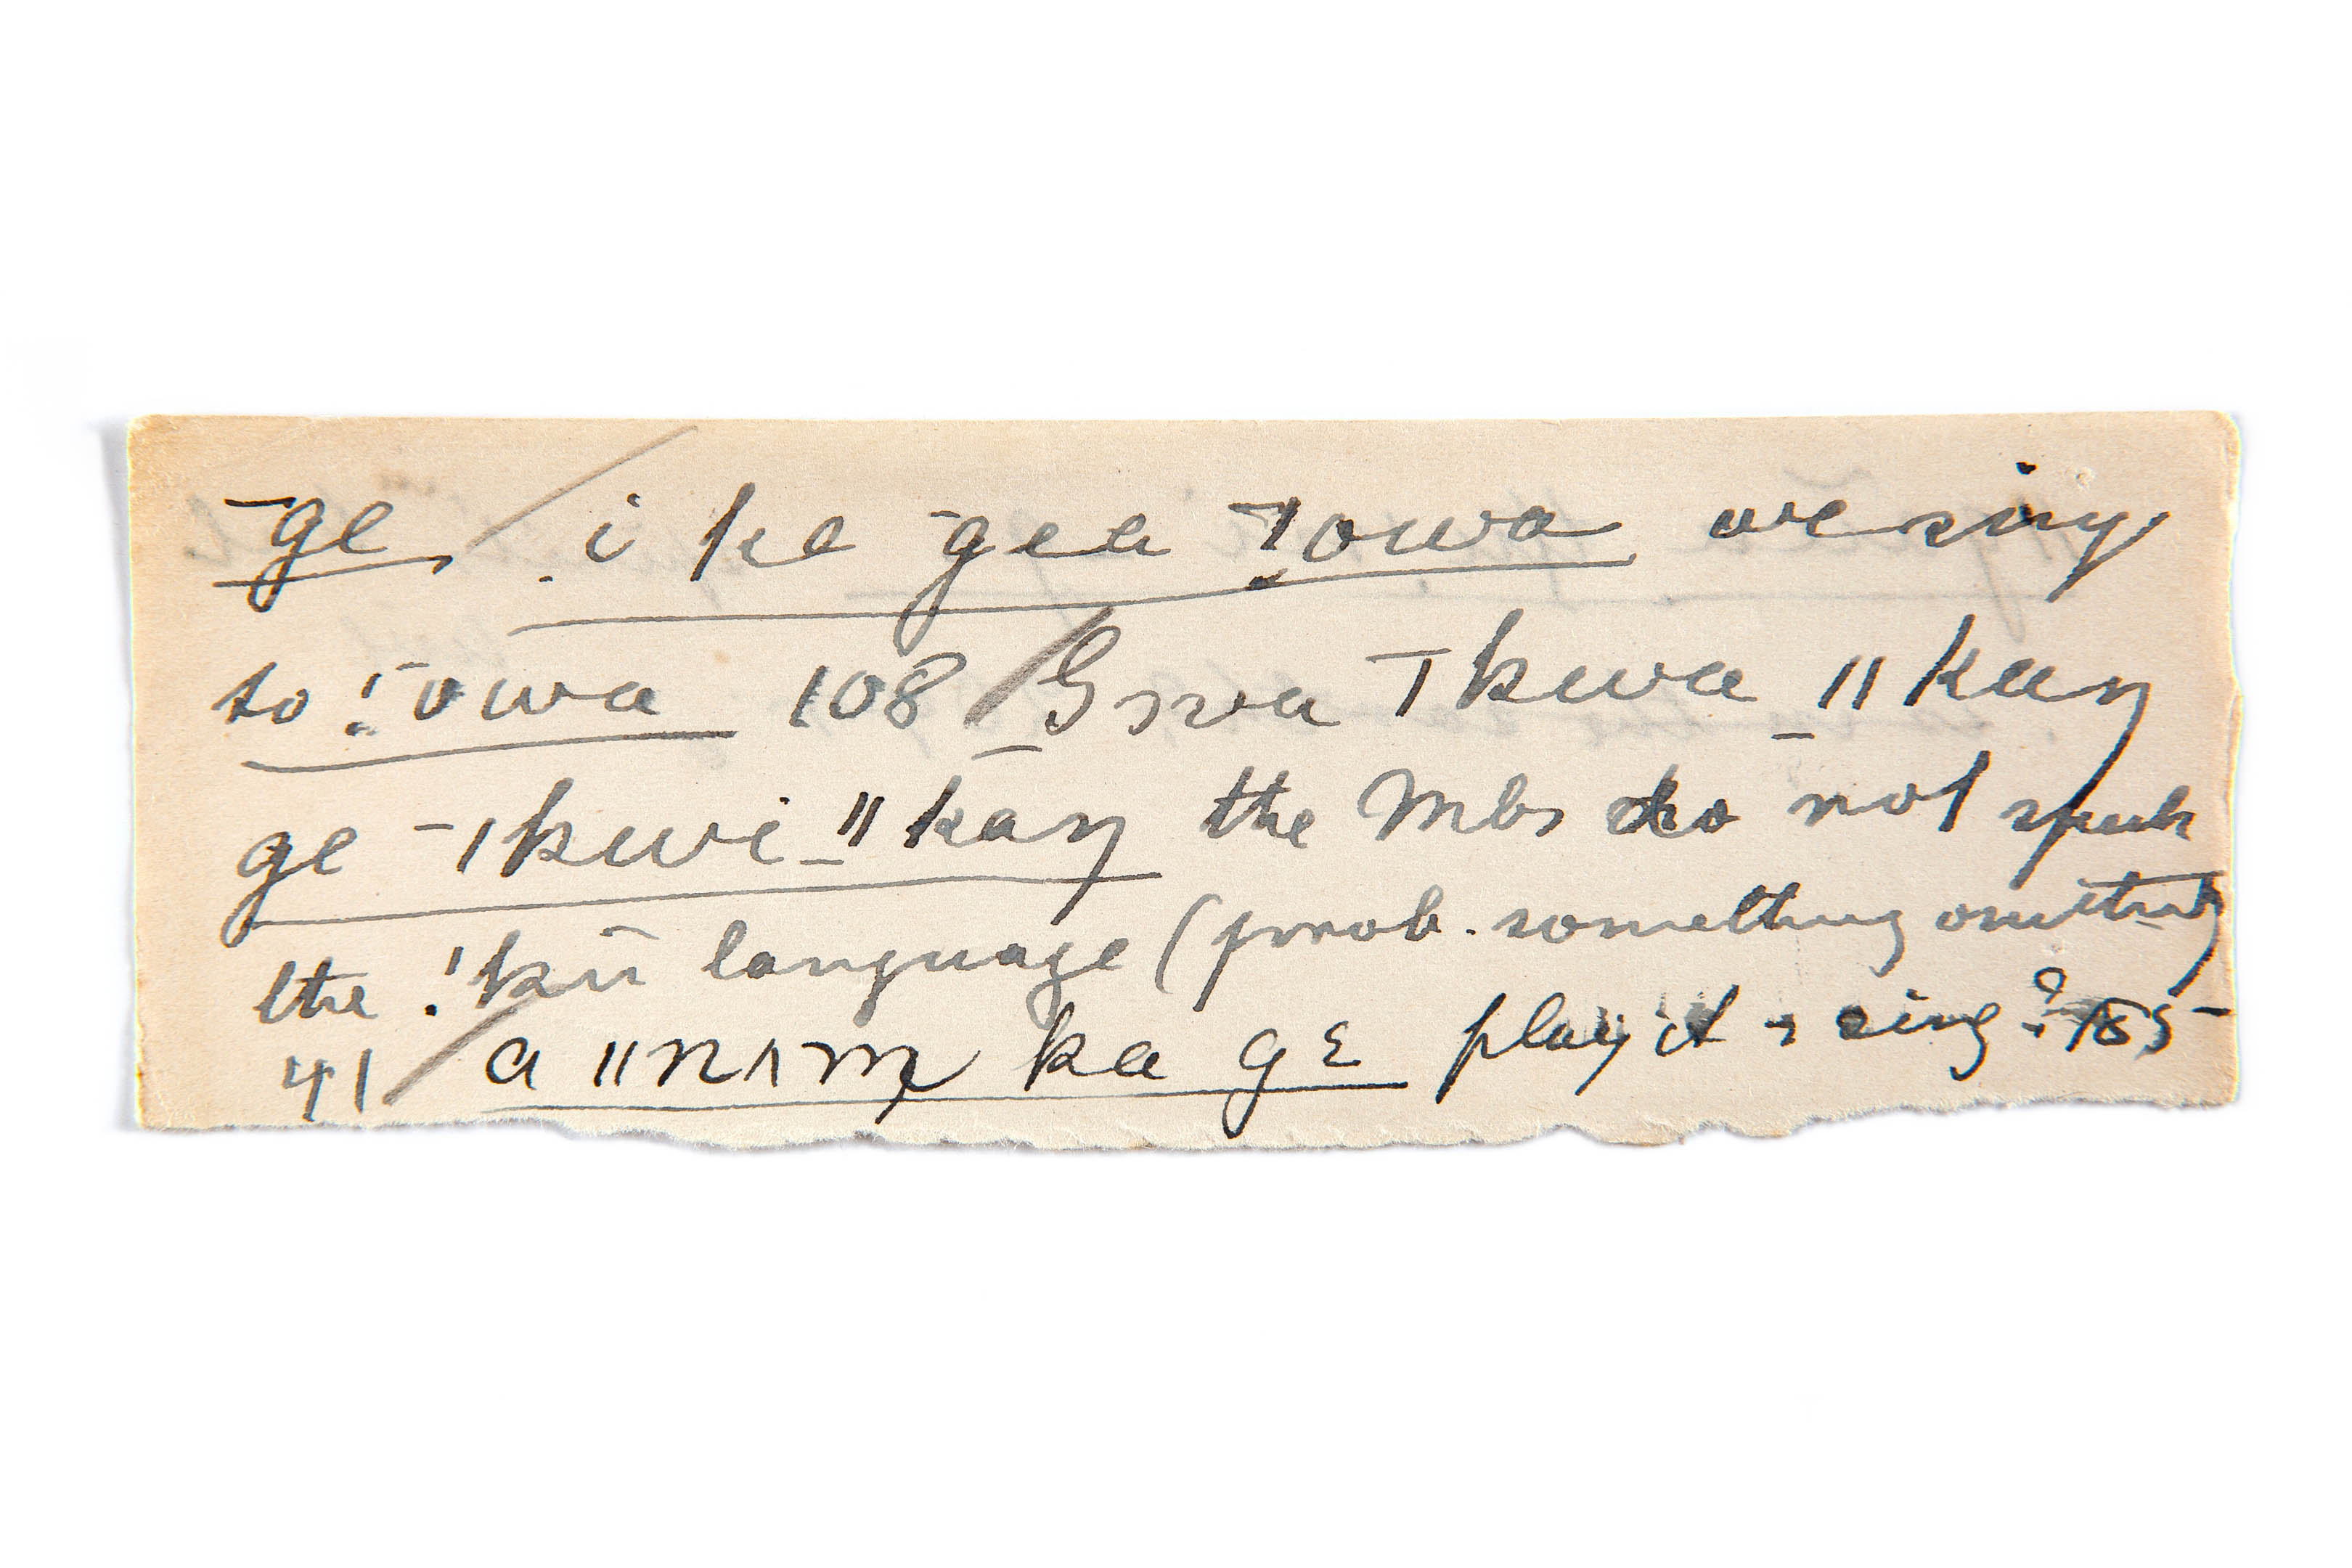 ˉge, / i ka ˉgea ˉ!owa we sing
to !ˉowa 108 / Gɔwa ˉ|kwa _||kaŋ
ge ˉ|kwi _||kaŋ the Mbs do not speak
the !kũ language (prob. something omitted)
41 / a ||nʌm ka gɛ play it & sing? 155-